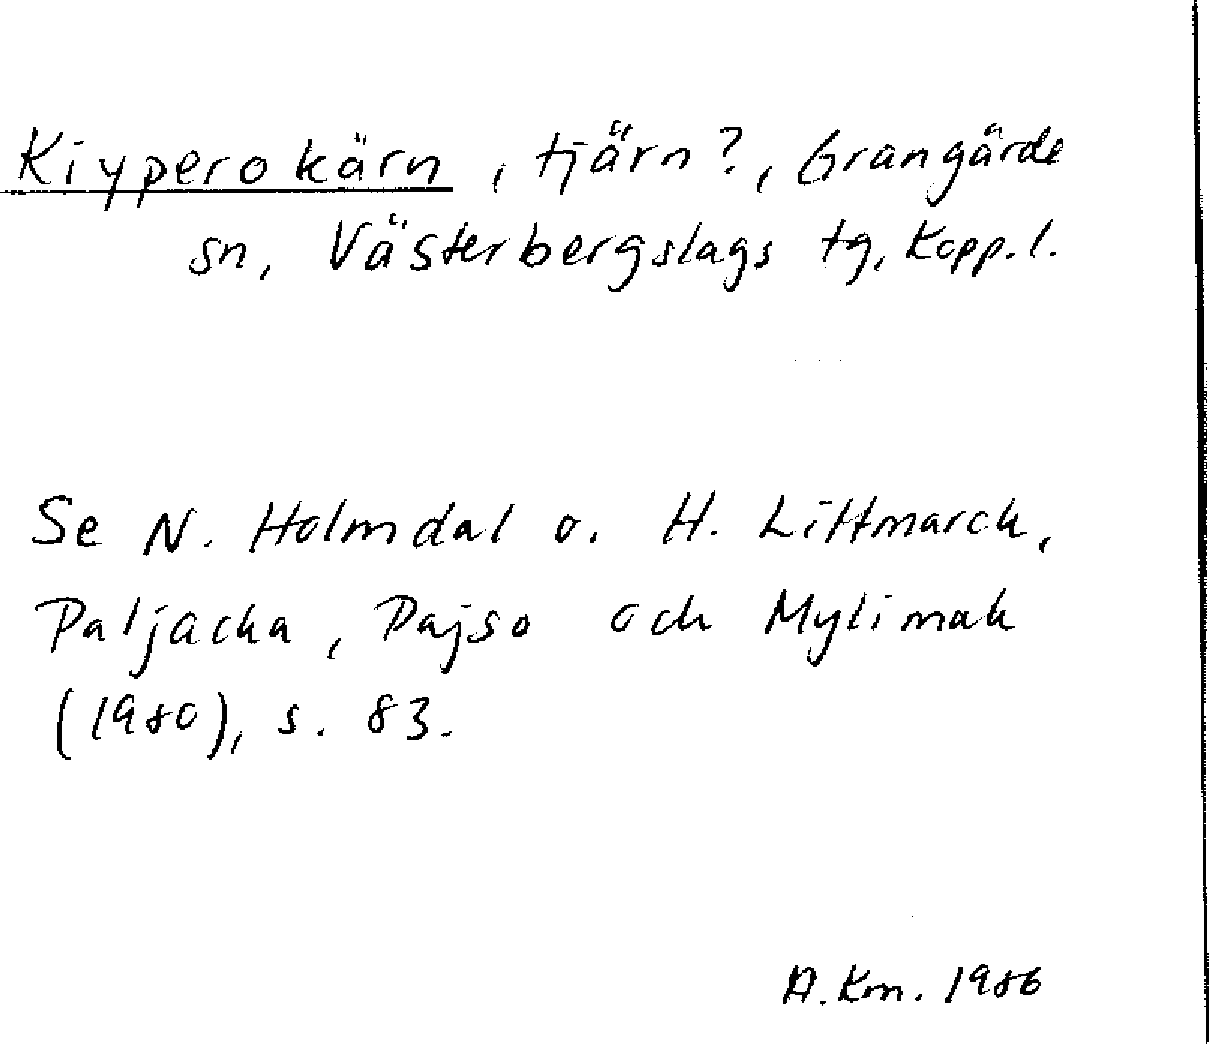 Kiypero kärn, tjärn?, Grangärde
sn, Västerbergslags tg, Kopp. l.
Se N. Holmdal o. H. Littmarck,
Paljacka, Pajso och Mylimak
(1980), s. 83.
A. Km. 1986